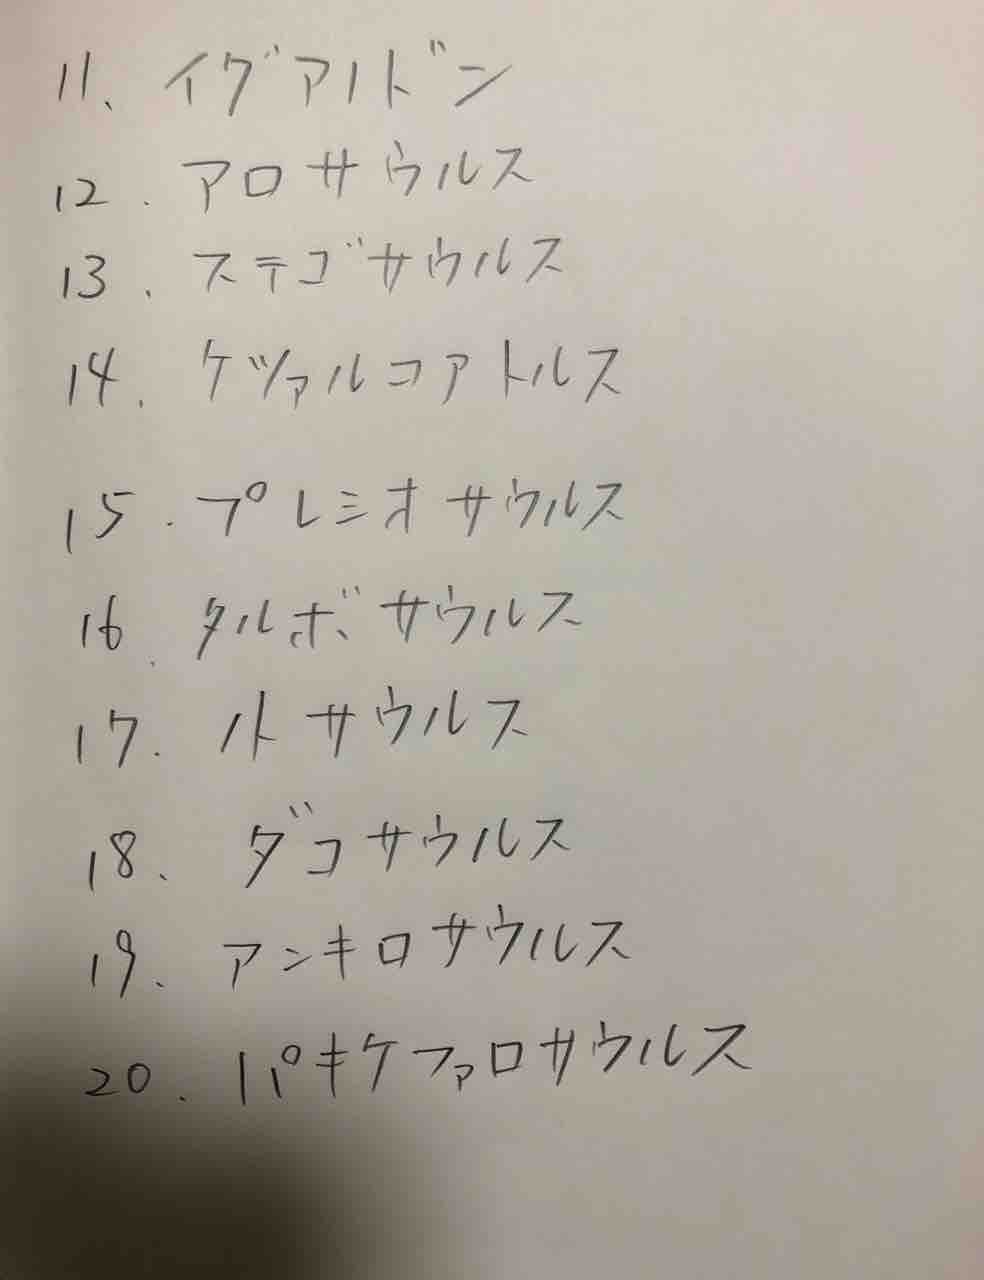 11、イグアノドン
12．アロサウルス
13．ステゴサウルス
14．ケツァルコアトルス
15．プレシオサウルス
16．タルボサウルス
17．ノトサウルス
18、ダコサウルス
19、アンキロサウルス
20．パキケファロサウルス